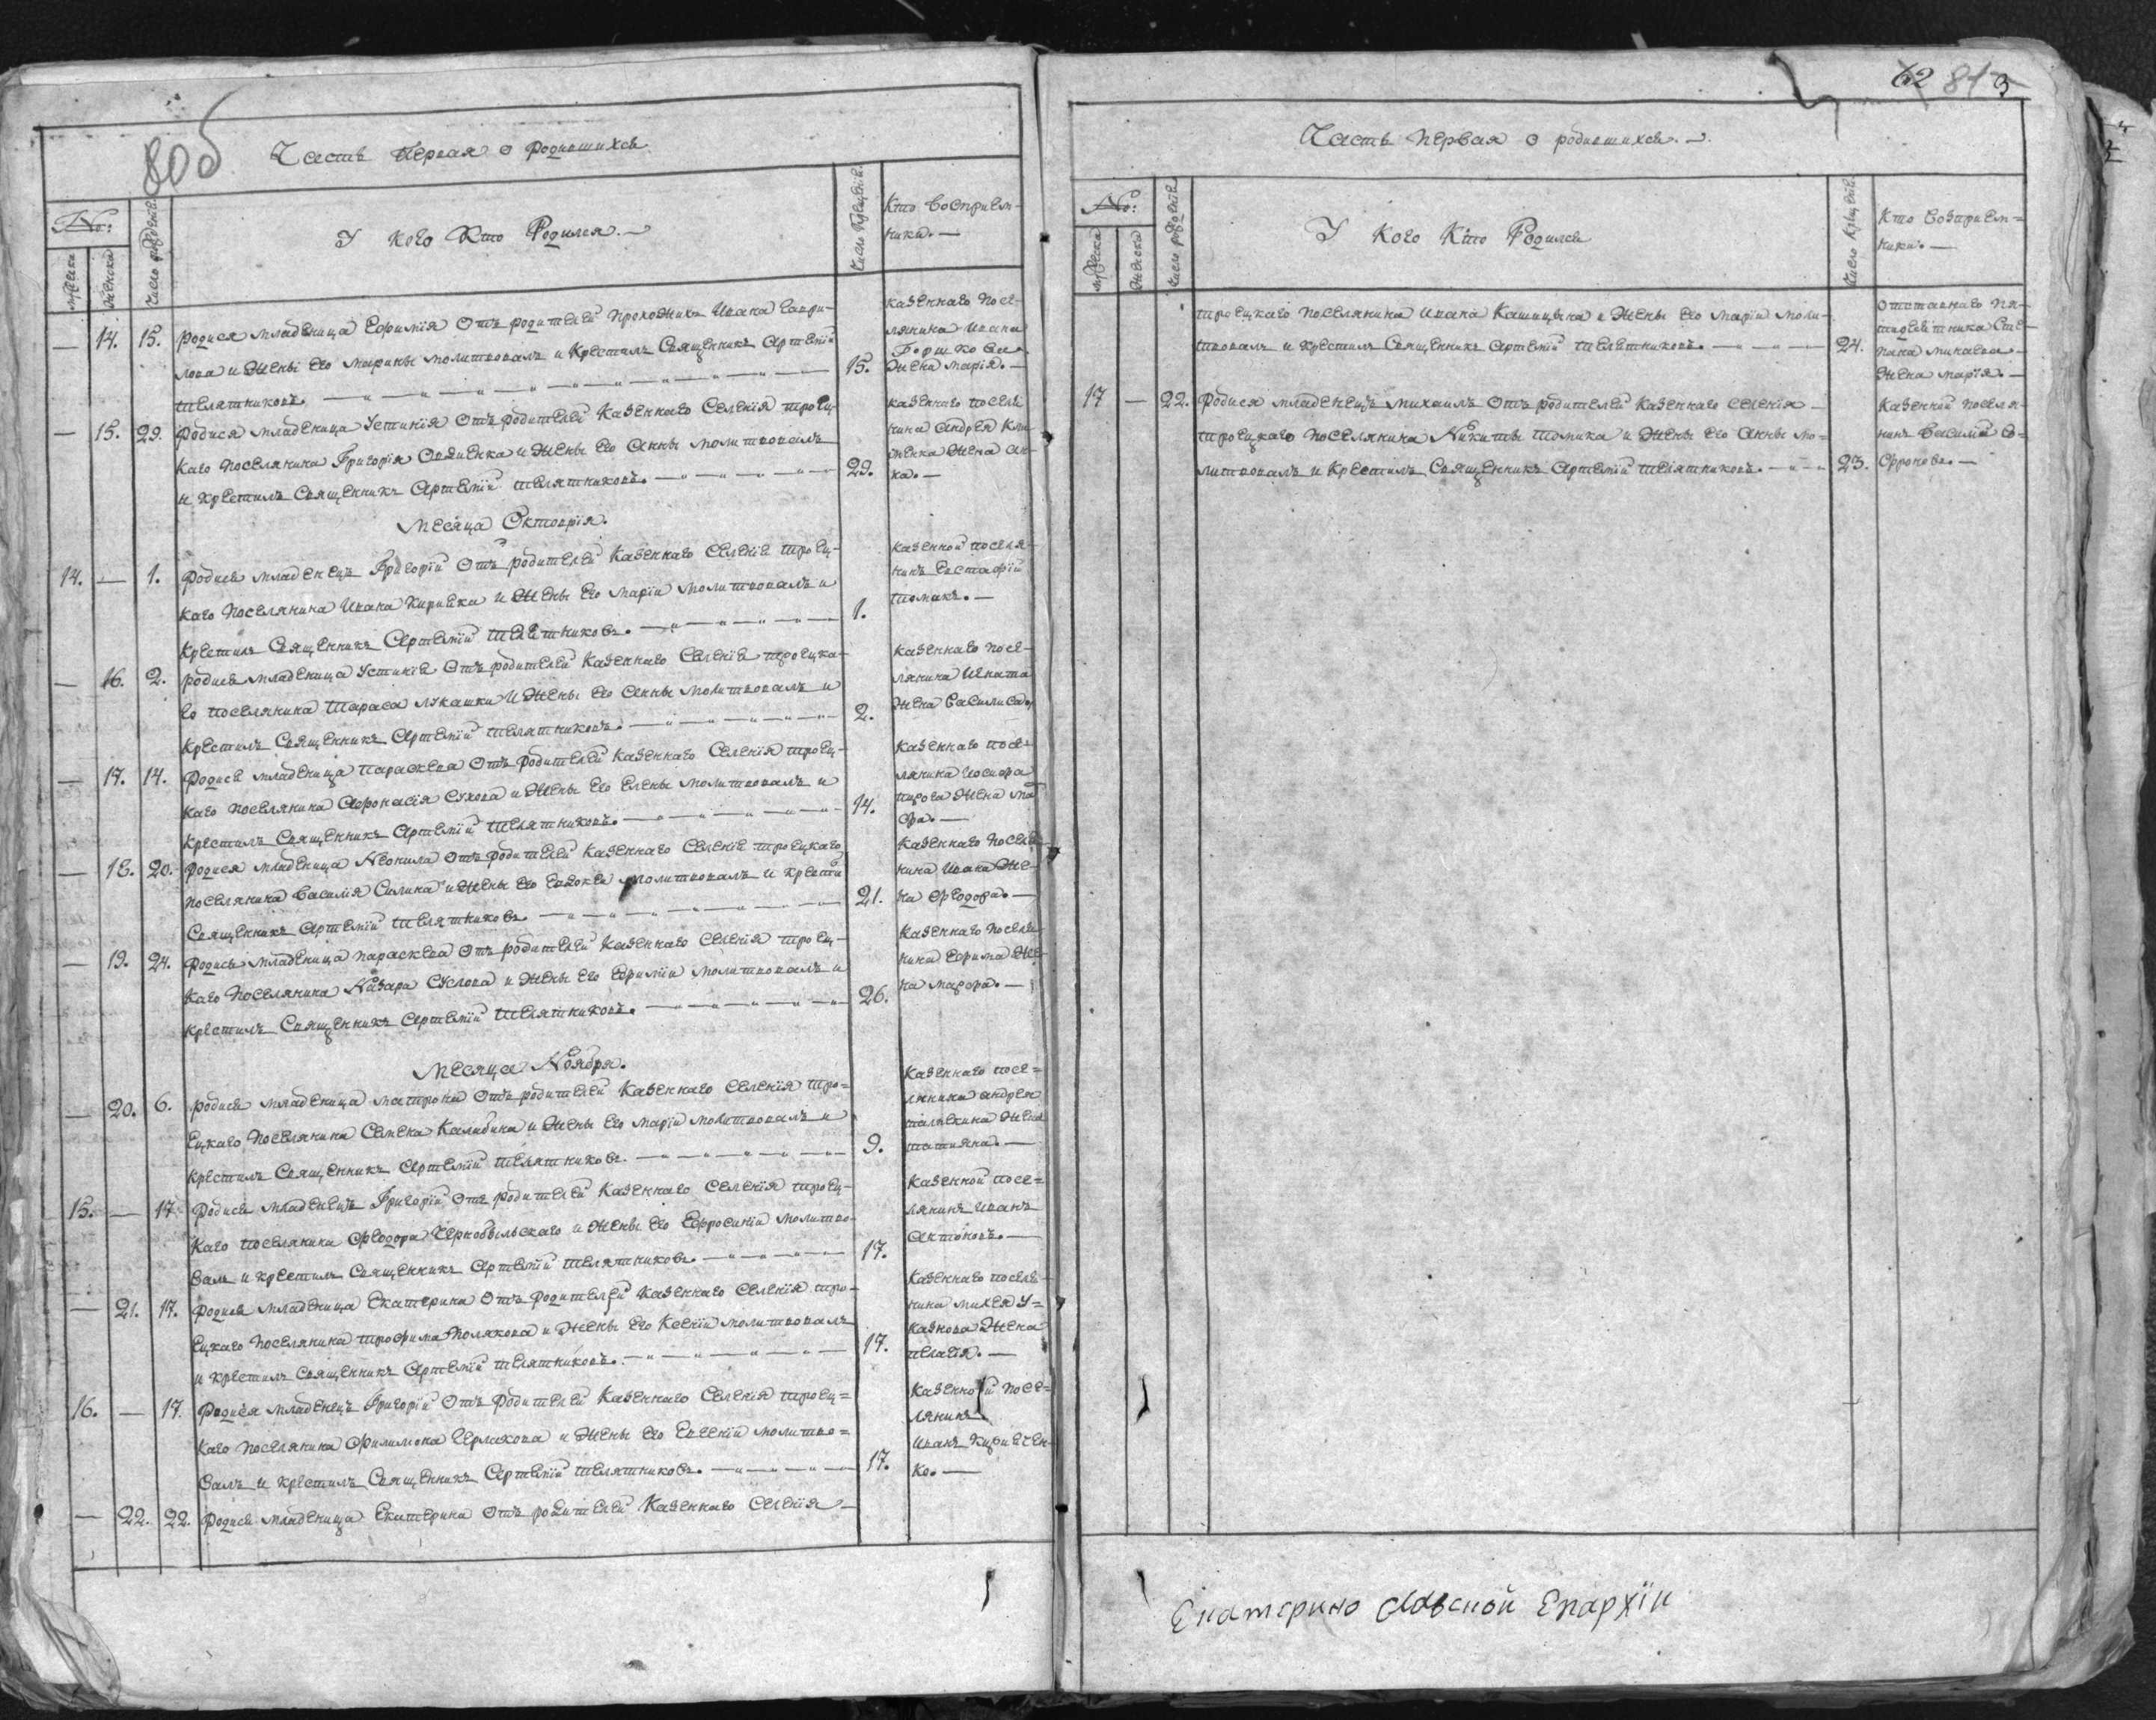 80б
Часть первая о родившихся
№:
мужеска
женска
Число рождения
У кого Кто Родился.
Число Крещения
Кто восприем-
ники.
— 14. 15. Родися младеница Ефимія Отъ родителей Ивана Гаври-
лова и Жены его Марины молитвовалъ и Крестилъ Священникъ Артемій
Телятниковъ. 15.
казеннаго посе-
лянина Ивана
Борщкова
Жена Марія.
— 15. 29. Родися младеница Устинія Отъ родителей Казеннаго Селенія троец-
каго поселянина Григорія и Жены его Анны молитвовалъ
и Крестилъ Священникъ Артемій Телятниковъ. 29.
казеннаго посел
нина Андрея
Жена Ан-
на.
Месяца Октоврія.
14. — 1. Родися младенецъ Григорій Отъ родителей Казеннаго Селенія троец-
каго поселянина Ивана и Жены его Маріи молитвовалъ и
Крестилъ Священникъ Артемій Телятниковъ. 1.
казенной поселя-
нинъ Евстафій
Томакъ.
— 16. 2. родися младеница Устинія Отъ родителей Казеннаго Селенія троецка-
го поселянина Тараса Лукашки и Жены его Анны молитвовалъ и
Крестилъ Священникъ Артемій Телятниковъ. 2.
казеннаго посе-
лянина Игната
Жена Василиса.
— 17. 14. Родися младеница Параскева Отъ родителей Казеннаго Селенія троец-
каго поселянина Афонасія Сухова и Жены его Елены молитвовалъ и
Крестилъ Священникъ Артемій Телятниковъ. 14.
казеннаго посе-
лянина Иосифа
Пирога Жена Ма
фра.
— 18. 20. Родися младеница Неонила Отъ родителей Казеннаго Селенія троецкаго
поселянина Василія Силина и Жены его Евдокеи молитвовалъ и крести
Священникъ Артемій Телятниковъ. 21.
казеннаго поселя
нина Ивана Же-
на Феодора.
— 19. 24. Родися младеница Параскева Отъ родителей Казеннаго Селенія троец-
каго поселянина Назара Суслова и Жены его Ефиміи молитвовалъ и
крестилъ Священникъ Артемій Телятниковъ. 26.
казеннаго поселя
нина Ефима Же-
на Марфа.
Месяца Ноября.
— 20. 6. родися младеница Матрона Отъ родителей Казеннаго Селенія тро=
ецкаго поселянина Семена Калибина и Жены его Маріи молитвовалъ и
крестилъ Священникъ Артемій Телятниковъ. 9.
Казеннаго посе=
лянина Андрея
Жена
Татияна.
15. — 17 Родися младенецъ Григорій Отъ родителей Казеннаго Селенія троец-
каго поселянина Феодора Чернобыльскаго и Жены его Ефросиніи молитво-
валъ и крестилъ Священникъ Артемій Телятниковъ. 17.
Казенной посе=
лянинъ Иванъ
Антоновъ.
— 21. 17. Родися младеница Екатерина Отъ родителей Казеннаго Селенія тро-
ецкаго поселянина Трофима Полякова и Жены его Ксеніи молитвовалъ
и крестилъ Священникъ Артемій Телятниковъ. 17.
Казеннаго поселя-
нина Михея У=
Жена
Пелагія.
16. — 17. Родися младенецъ Григорій Отъ Родителей Казеннаго Селенія троец=
каго поселянина Филимона Чермкова и Жены его Евгеніи молитво=
валъ и крестилъ Священникъ Артемій Телятниковъ. 17.
Казенной посе=
лянинъ
Иванъ Кириечен-
ко.
— 22. 22. Родися младеница Екатерина Отъ родителей Казеннаго Селенія
62 81
Часть Первая о родившихся.
№:
мужеска
женска
Число рождения
У Кого Кто Родился
Число Крещения
Кто восприем=
ники.
троецкаго поселянина Ивана Кашицына и Жены его Маріи моли-
твовалъ и крестилъ Священникъ Артемій Телятниковъ. 24.
Отставнаго пя-
тидесятника Сте-
пана Минаева
Жена Марія.
17 — 22. Родися младенецъ Михаилъ Отъ родителей Казеннаго Селенія
троецкаго поселянина Никиты Томика и Жены его Анны мо=
литвовалъ и Крестилъ Священникъ Артемій Телятниковъ. 23.
Казенной поселя-
нинъ Василій Со=
фроновъ.
Екатеринославской Епархіи